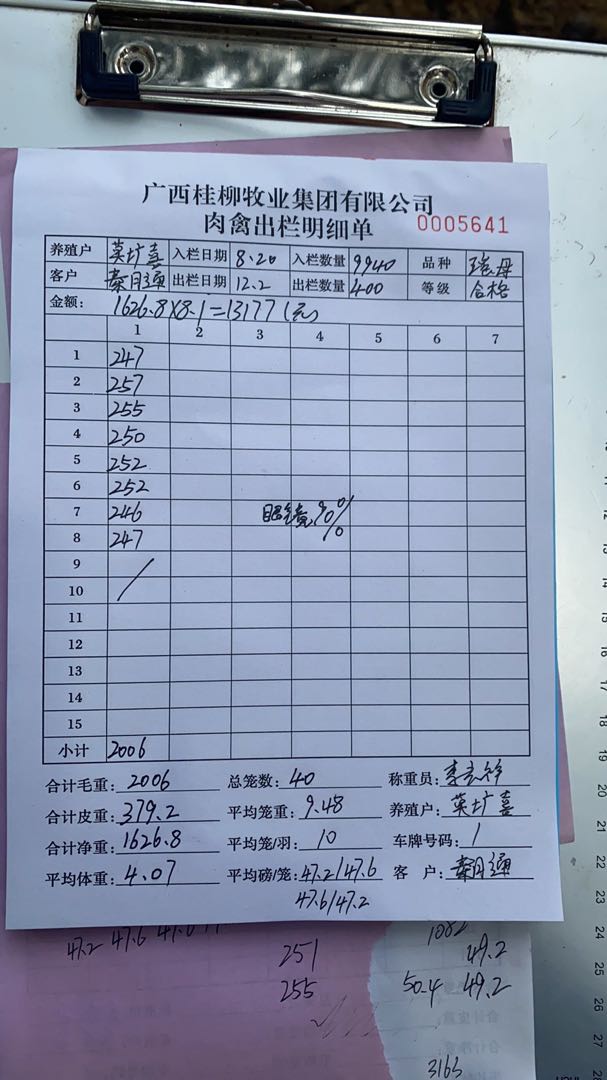 广西桂柳牧业集团有限公司
肉禽出栏明细单 0005641
养殖户 莫圹喜 入栏日期 8.20 入栏数量 9940 品种 瑶母
客户 秦月通 出栏日期 12.2 出栏数量 400 等级 合格
金额: 1626.8×8.1=13177(元)
1 2 3 4 5 6 7
1 247
2 257
3 255
4 250
5 252
6 252
7 246 眼镜90%
8 247 %
9
10
11
12
13
14
15
小计 2006
合计毛重: 2006 总笼数: 40 称重员:
合计皮重: 379.2 平均笼重: 9.48 养殖户: 莫圹喜
合计净重: 1626.8 平均笼/羽: 10 车牌号码: 1
平均体重: 4.07 平均磅/笼: 47.2/47.6 客户: 秦月通
47.6/47.2
47.2 47.6
251 1082 49.2
255 50.4 49.2
3165